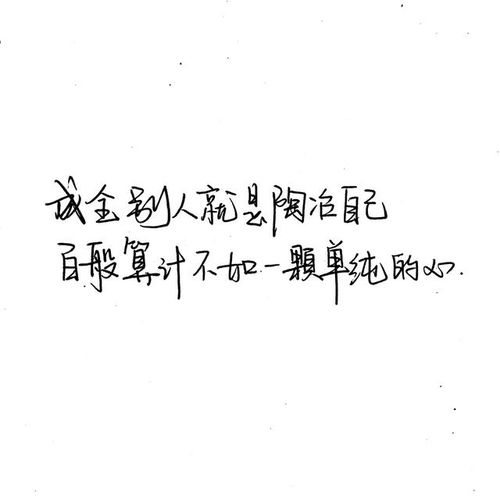 成全别人就是陶冶自己
百般算计不如一颗单纯的心.